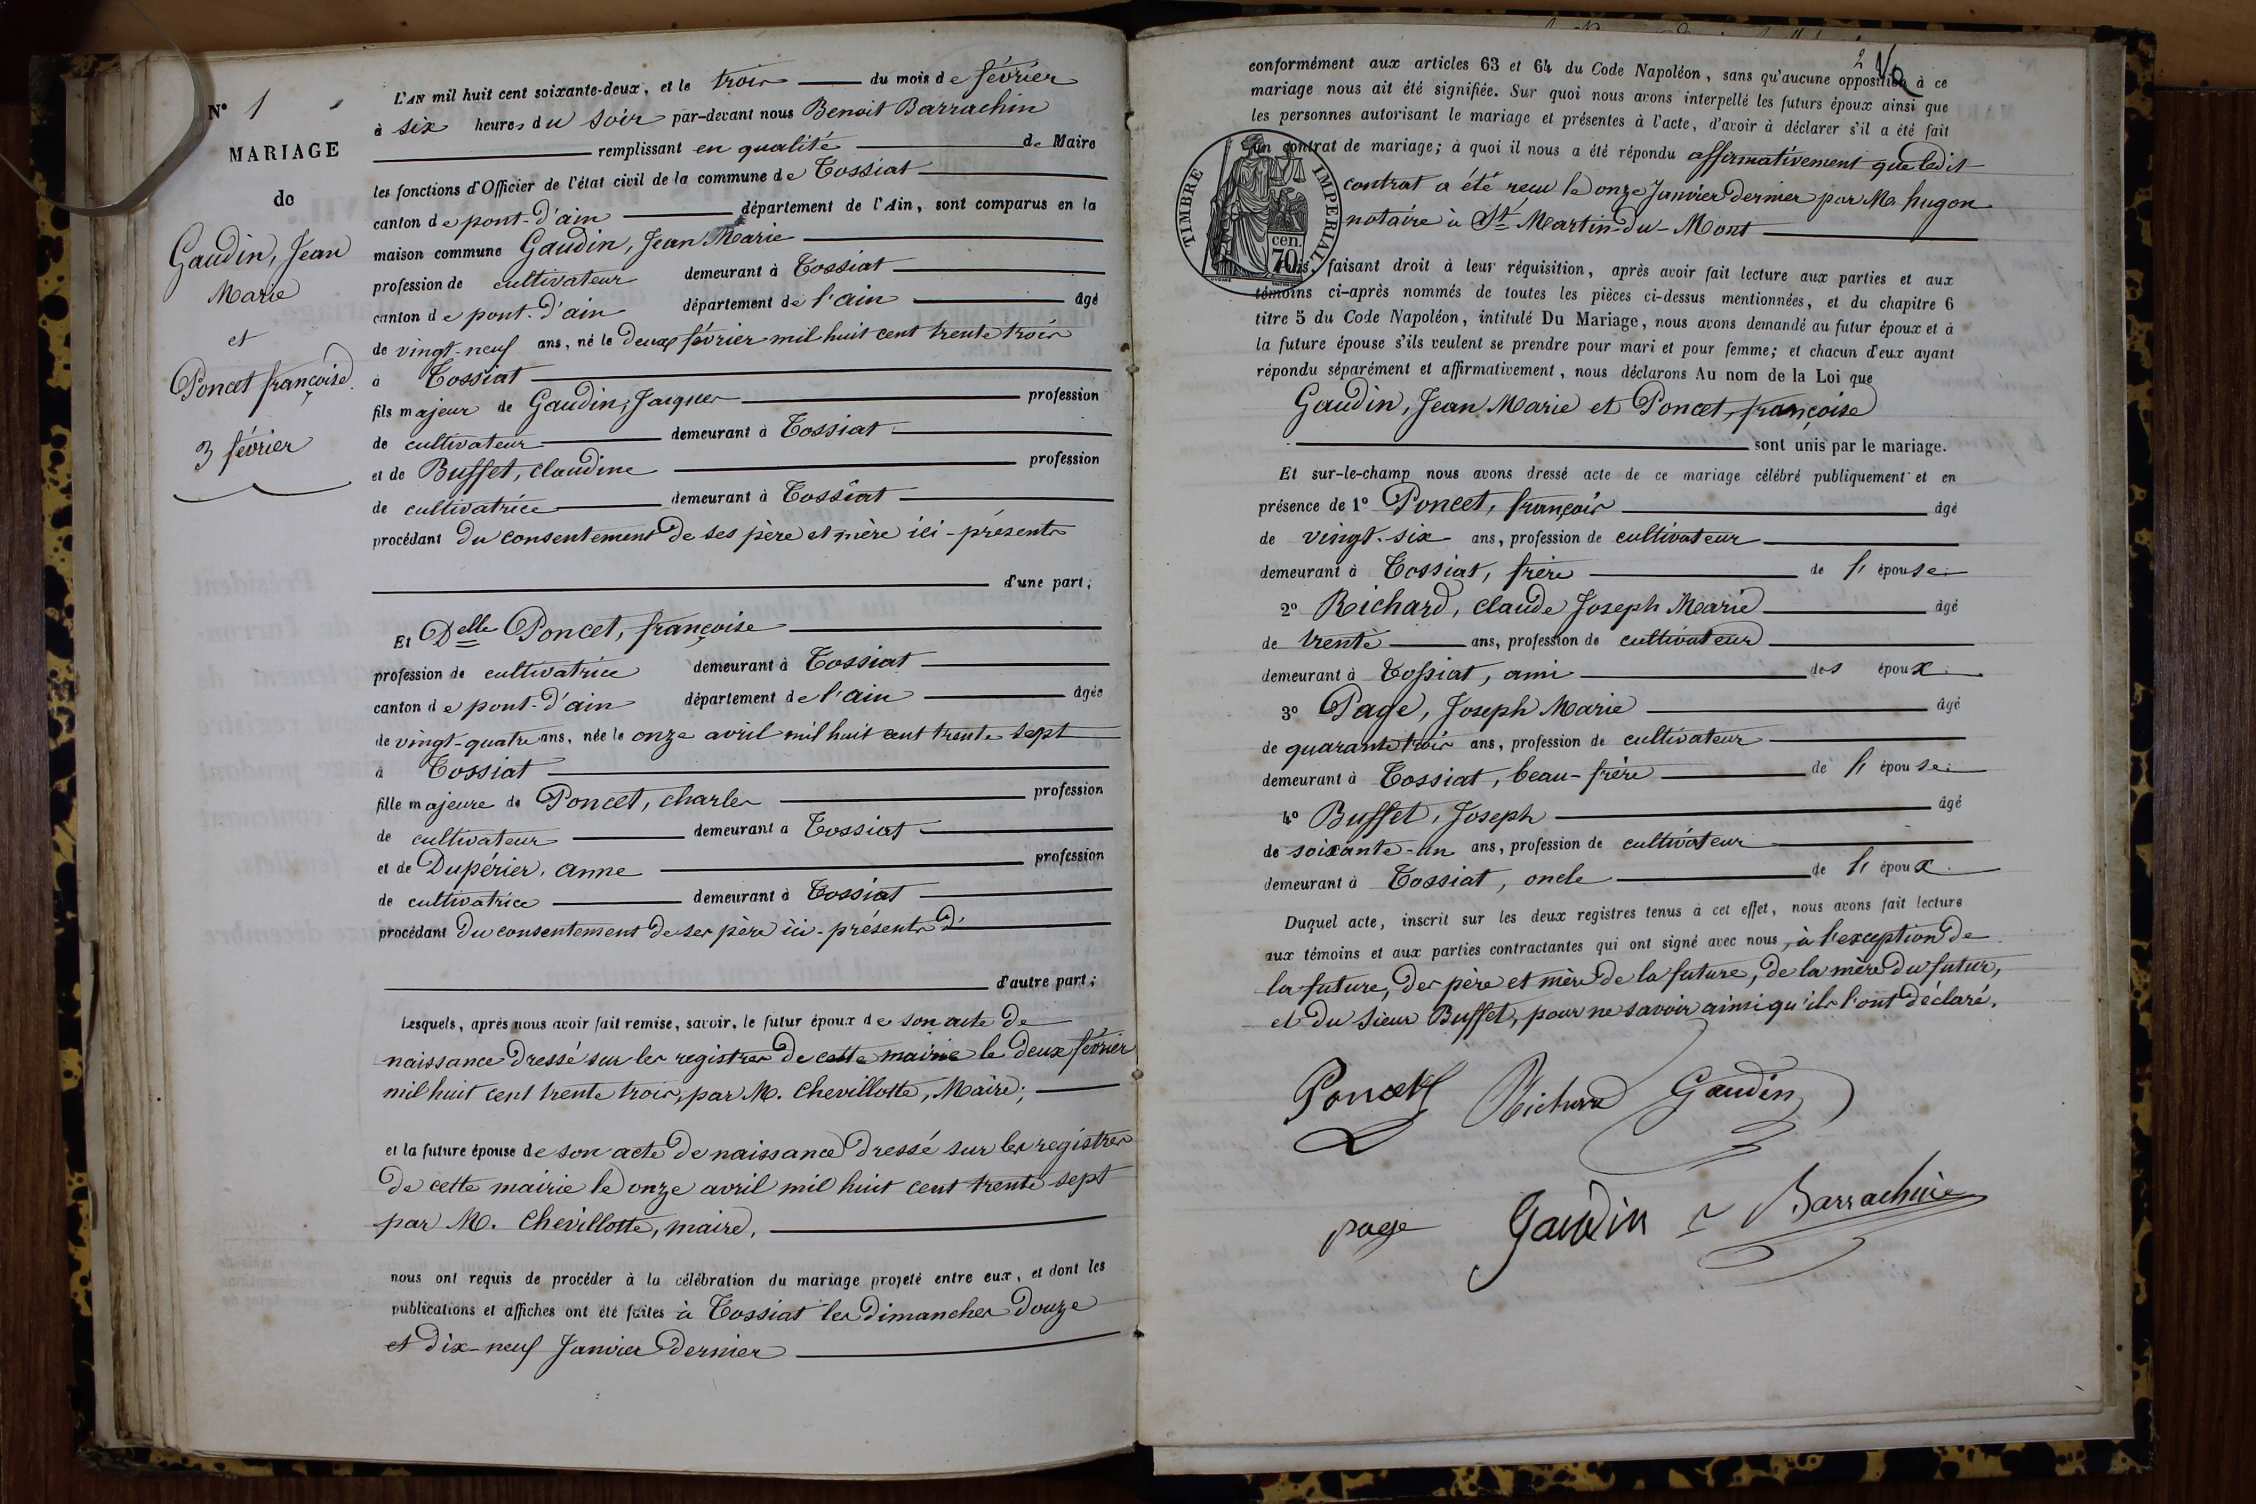 N° 1
MARIAGE
de
Gaudin, Jean
Marie
et
Poncet françoise
3 février
L'AN mil huit cent soixante-deux, et le trois du mois de février
à six heures du soir par-devant nous Benoit Barrachin
remplissant en qualité de Maire
les fonctions d'Officier de l'état civil de la commune de Tossiat
canton de pont-d'ain département de l'Ain, sont comparus en la
maison commune Gaudin, Jean Marie
profession de cultivateur demeurant à Tossiat
canton de pont-d'ain département de l'ain âgé
de vingt-neuf ans, né le deux février mil huit cent trente trois
à Tossiat
fils majeur de Gaudin, Jacques profession
de cultivateur demeurant à Tossiat
et de Buffet, claudine profession
de cultivatrice demeurant à Tossiat
procédant du consentement de ses père et mère ici-présents
d'une part;
Et Delle Poncet, françoise
profession de cultivatrice demeurant à Tossiat
canton de pont-d'ain département de l'ain âgée
de vingt-quatre ans, née le onze avril mil huit cent trente sept
à Tossiat
fille majeure de Poncet, charles profession
de cultivateur demeurant à Tossiat
et de Dupérier, anne profession
de cultivatrice demeurant à Tossiat
procédant du consentement de ses père ici-présents
d'autre part;
Lesquels, après nous avoir fait remise, savoir, le futur époux de son acte de
naissance dressé sur les registres de cette mairie le deux février
mil huit cent trente trois, par M. Chevillotte, Maire;
et la future épouse de son acte de naissance dressé sur les registres
de cette mairie le onze avril mil huit cent trente sept
par M. Chevillotte, maire.
nous ont requis de procéder à la célébration du mariage projeté entre eux, et dont les
publications et affiches ont été faites à Tossiat les dimanches douze
et dix-neuf Janvier dernier
2
conformément aux articles 63 et 64 du Code Napoléon, sans qu'aucune opposition à ce
mariage nous ait été signifiée. Sur quoi nous avons interpellé les futurs époux ainsi que
les personnes autorisant le mariage et présentes à l'acte, d'avoir à déclarer s'il a été fait
un contrat de mariage; à quoi il nous a été répondu affirmativement que ledit
contrat a été reçu le onze Janvier dernier par Me hugon
notaire à St Martin-du-Mont
TIMBRE IMPERIAL
70 cen.
Puis, faisant droit à leur réquisition, après avoir fait lecture aux parties et aux
témoins ci-après nommés de toutes les pièces ci-dessus mentionnées, et du chapitre 6
titre 5 du Code Napoléon, intitulé Du Mariage, nous avons demandé au futur époux et à
la future épouse s'ils veulent se prendre pour mari et pour femme; et chacun d'eux ayant
répondu séparément et affirmativement, nous déclarons Au nom de la Loi que
Gaudin, Jean Marie et Poncet, françoise
sont unis par le mariage.
Et sur-le-champ nous avons dressé acte de ce mariage célébré publiquement et en
présence de 1° Poncet, françois âgé
de vingt-six ans, profession de cultivateur
demeurant à Tossiat, frère de l' épouse
2° Richard, claude Joseph Marie âgé
de trente ans, profession de cultivateur
demeurant à Tossiat, ami des époux
3° Page, Joseph Marie âgé
de quarante trois ans, profession de cultivateur
demeurant à Tossiat, beau-frère de l' épouse
4° Buffet, Joseph âgé
de soixante-un ans, profession de cultivateur
demeurant à Tossiat, oncle de l' époux
Duquel acte, inscrit sur les deux registres tenus à cet effet, nous avons fait lecture
aux témoins et aux parties contractantes qui ont signé avec nous, à l'exception de
la future, des père et mère de la future, de la mère du futur,
et du sieur Buffet, pour ne savoir ainsi qu'ils l'ont déclaré.
Poncet Richard Gaudin
page Gaudin Barrachin